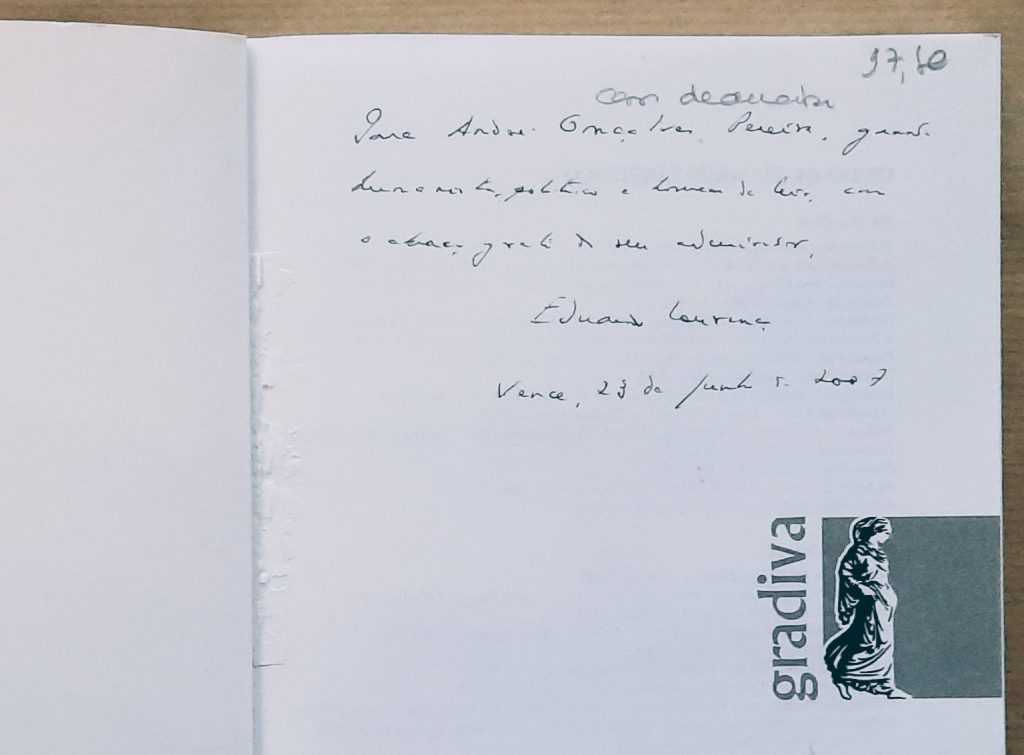 17,50
com dedicatória
Para André Gonçalves Pereira, grande
humanista, político e homem de leis, com
o abraço grato do seu admirador,
Eduardo Lourenço
Vence, 23 de Junho de 2007
gradiva